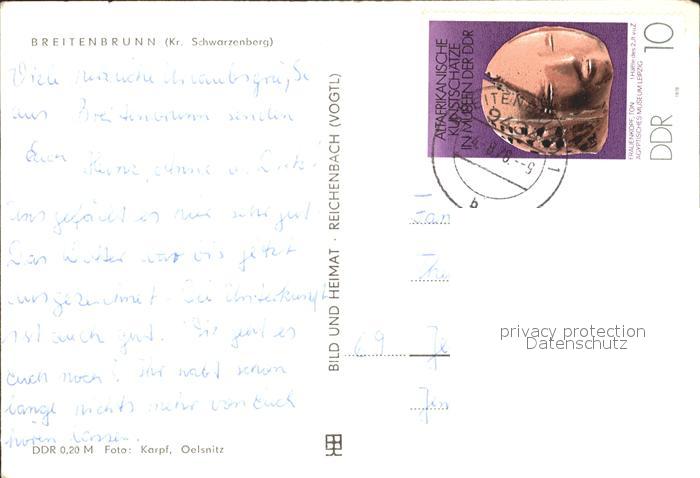 BREITENBRUNN (Kr. Schwarzenberg)
Viele herzliche Urlaubsgrüße
aus Breitenbrunn senden
Euch Heinz, Anna u.
Uns gefällt es hier sehr gut.
Das Wetter war bis jetzt
ausgezeichnet. Die Unterkunft
ist auch gut. Wie geht es
euch noch? Ihr habt schon
lange nichts mehr von Euch
hören lassen.
DDR 0,20 M Foto: Karpf, Oelsnitz
BILD UND HEIMAT · REICHENBACH (VOGTL)
ALTAFRIKANISCHE
KUNSTSCHÄTZE
IN MUSEEN DER DDR
FRAUENKOPF, TON 1. Hälfte des 2. Jt. v.u.Z.
ÄGYPTISCHES MUSEUM LEIPZIG
1978
DDR 10
Fam
69 Je
Jen
privacy protection
Datenschutz